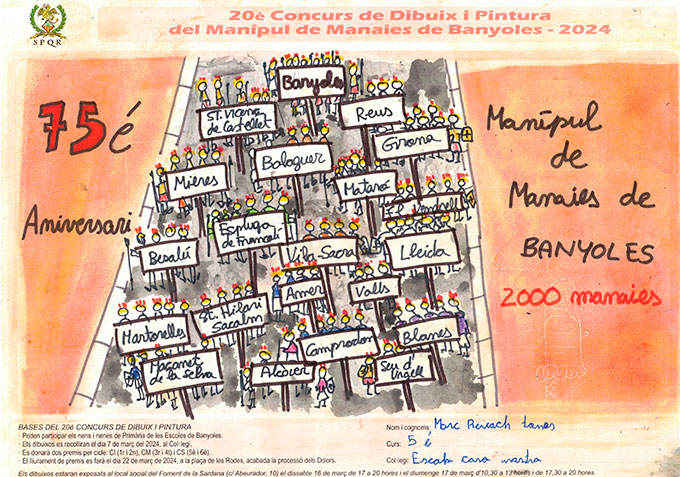 SPQR
20è Concurs de Dibuix i Pintura
del Manipul de Manaies de Banyoles - 2024
75é
Aniversari
Banyoles
St. Vicenç
de Castellet
Reus
Girona
Balaguer
Mieres
Mataró
El Vendrell
Espluga
de Francolí
Besalú
Vila-Sacra
Lleida
Amer
Valls
St. Hilari
Sacalm
Martorelles
Camprodon
Blanes
Maçanet
de la Selva
Alcover
Seu d'
Urgell
Manípul
de
Manaies de
BANYOLES
2000 manaies
BASES DEL 20è CONCURS DE DIBUIX I PINTURA
- Poden participar els nens i nenes de Primària de les Escoles de Banyoles.
- Els dibuixos es recolliran el dia 7 de març del 2024, al Col·legi.
- Es donarà dos premis per cicle: CI (1r i 2n), CM (3r i 4t) i CS (5è i 6è).
- El lliurament de premis es farà el dia 22 de març de 2024, a la plaça de les Rodes, acabada la processó dels Dolors.
Els dibuixos estaran exposats al local social del Foment de la Sardana (c/ Abeurador, 10) el dissabte 16 de març de 17 a 20 hores i el diumenge 17 de març d'10,30 a 13 hores i de 17,30 a 20 hores.
Nom i cognoms: Marc
Curs: 5 é
Col·legi: Escola casa nostra